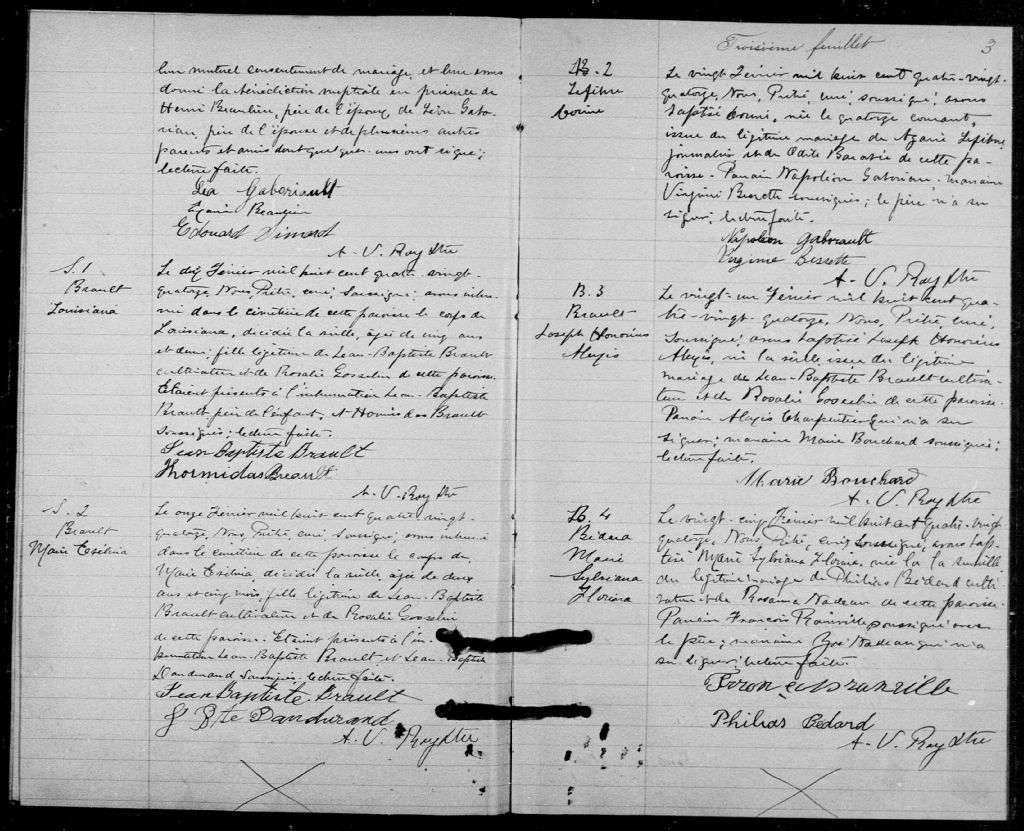 leur mutuel consentement de mariage, et leur avons
donné la bénédiction nuptiale en présence de
Henri Beaulieu, père de l'époux, de Léon Gabo-
riau, père de l'épouse et de plusieurs autres
parents et amis dont quelques-uns ont signé;
lecture faite.
Léa Gaboriault
Beaulieu
Edouard Simard
A. V. Roy Ptre
S. 1
Brault
Louisiana
Le dix Février mil huit cent quatre-vingt-
quatorze, Nous, Prêtre, curé, soussigné, avons inhu-
mé dans le cimetière de cette paroisse le corps de
Louisiana, décédée la veille, âgée de cinq ans
et demi; fille légitime de Jean-Baptiste Brault
cultivateur et de Rosalie Gosselin de cette paroisse.
Etaient présents à l'inhumation Jean-Baptiste
Brault père de l'enfant, et Hormidas Brault
soussignés; lecture faite.
Jean Baptiste Brault
Thormidas Breault
A. V. Roy Ptre
S. 2
Brault
Marie Exélina
Le onze Février mil huit cent quatre-vingt-
quatorze, Nous, Prêtre, curé, soussigné, avons inhumé
dans le cimetière de cette paroisse le corps de
Marie Exélina, décédée la veille, âgée de deux
ans et cinq mois, fille légitime de Jean-Baptiste
Brault cultivateur et de Rosalie Gosselin
de cette paroisse. Etaient présents à l'in-
humation Jean-Baptiste Brault et Jean-Baptiste
Dandurand soussignés. lecture faite.
Jean Baptiste Brault
J Bte Dandurand
A. V. Roy Ptre
Troisième feuillet
3
B. 2
Lefebvre
Corine
Le vingt Février mil huit cent quatre-vingt-
quatorze, Nous, Prêtre, curé, soussigné, avons
baptisé Corine, née le quatorze courant,
issue du légitime mariage de Azarie Lefebvre,
journalier et de Odile Barabé de cette pa-
roisse. Parrain Napoléon Gaboriau. marraine
Virginie Bessette soussignés; le père n'a su
signer; lecture faite.
Napoleon Gaboriault
Virginie Bessette
A. V. Roy Ptre
B. 3
Brault
Joseph Honorius
Alexis
Le vingt-un Février mil huit cent qua-
tre-vingt-quatorze, Nous, Prêtre, curé,
soussigné, avons baptisé Joseph Honorius
Alexis, né la veille issu du légitime
mariage de Jean-Baptiste Brault cultiva-
teur et de Rosalie Gosselin de cette paroisse.
Parrain Alexis Charpentier qui n'a su
signer; marraine Marie Bouchard soussignée;
lecture faite.
Marie Bouchard
A. V. Roy Ptre
B. 4
Bédard
Marie
Sylviana
Florina
Le vingt-cinq Février mil huit cent quatre-vingt
quatorze, Nous, Prêtre, curé, soussigné, avons bap-
tisé Marie Sylviana Florina, née la surveille
du légitime mariage de Philias Bédard culti-
vateur et de Rosanna Nadeau de cette paroisse.
Parrain François Rainville soussigné avec
le père; marraine Zoé Nadeau qui n'a
su signer; lecture faite.
Philias Bedard
A. V. Roy Ptre